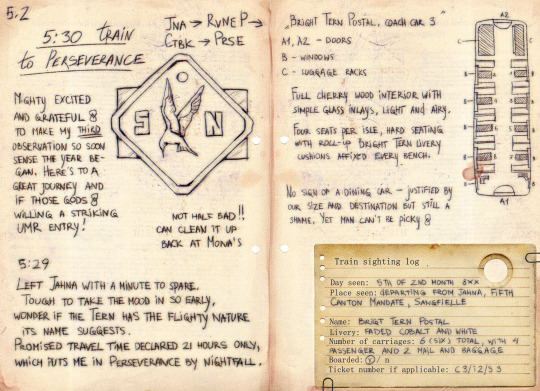 5.2
5:30 TRAIN
to PERSEVERANCE
JNA → RVNE P →
CTBK → PRSE
S N
MIGHTY EXCITED
AND GRATEFUL &
TO MAKE MY THIRD
OBSERVATION SO SOON
SENSE THE YEAR BE-
GAN. HERE'S TO A
GREAT JOURNEY AND
IF THOSE GODS &
WILLING A STRIKING
UMR ENTRY!
NOT HALF BAD!!
CAN CLEAN IT UP
BACK AT MONA'S
5:29
LEFT JAHNA WITH A MINUTE TO SPARE.
TOUGH TO TAKE THE MOOD IN SO EARLY,
WONDER IF THE TERN HAS THE FLIGHTY NATURE
ITS NAME SUGGESTS.
PROMISED TRAVEL TIME DECLARED 21 HOURS ONLY,
WHICH PUTS ME IN PERSEVERANCE BY NIGHTFALL.
„BRIGHT TERN POSTAL, COACH CAR 3"
A1, A2 - DOORS
B - WINDOWS
C - LUGGAGE RACKS
FULL CHERRY WOOD INTERIOR WITH
SIMPLE GLASS INLAYS, LIGHT AND AIRY.
FOUR SEATS PER ISLE, HARD SEATING
WITH ROLL-UP BRIGHT TERN LIVERY
CUSHIONS AFFIXED EVERY BENCH.
NO SIGN OF A DINING CAR - JUSTIFIED BY
OUR SIZE AND DESTINATION BUT STILL A
SHAME. YET MAN CAN'T BE PICKY &
A2
C C
B B
B B
B B
B B
B B
A1
Train sighting log
Day seen: 5TH OF 2ND MONTH 8XX
Place seen: DEPARTING FROM JAHNA, FIFTH
CANTON MANDATE, SANGFIELLE
Name: BRIGT TERN POSTAL
Livery: FADED COBALT AND WHITE
Number of carriages: 6 (SIX) TOTAL, WITH 4
PASSENGER AND 2 MAIL AND BAGGAGE
Boarded: Y / n
Ticket number if applicable: C3/12/53